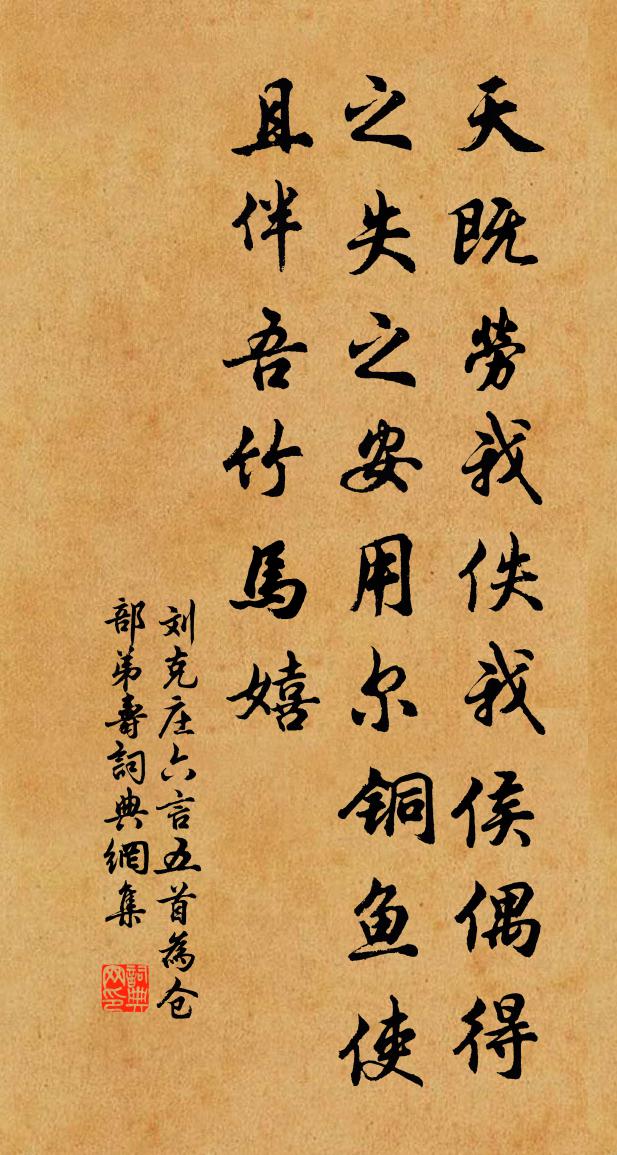 天既劳我佚我侯偶得
之失之安用尔铜鱼使
且伴吾竹馬嬉
刘克庄六言五首為仓
部弟壽詞典網集
詞典
网印